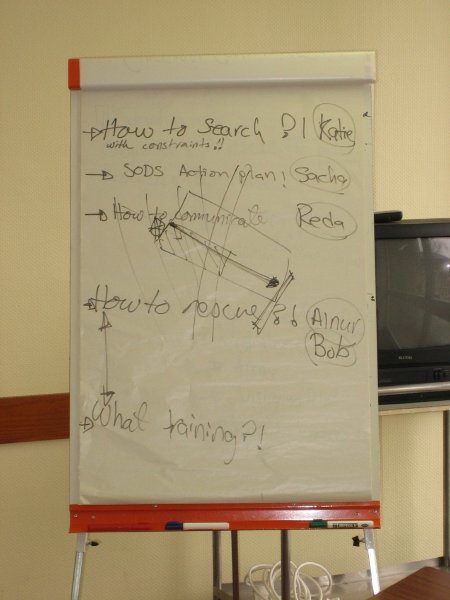 How to Search ?! Katie
with constraints!!
SODS Action plan! Sacha
How to Communicate Reda
How to rescue ?! Ainur
Bob
What training?!